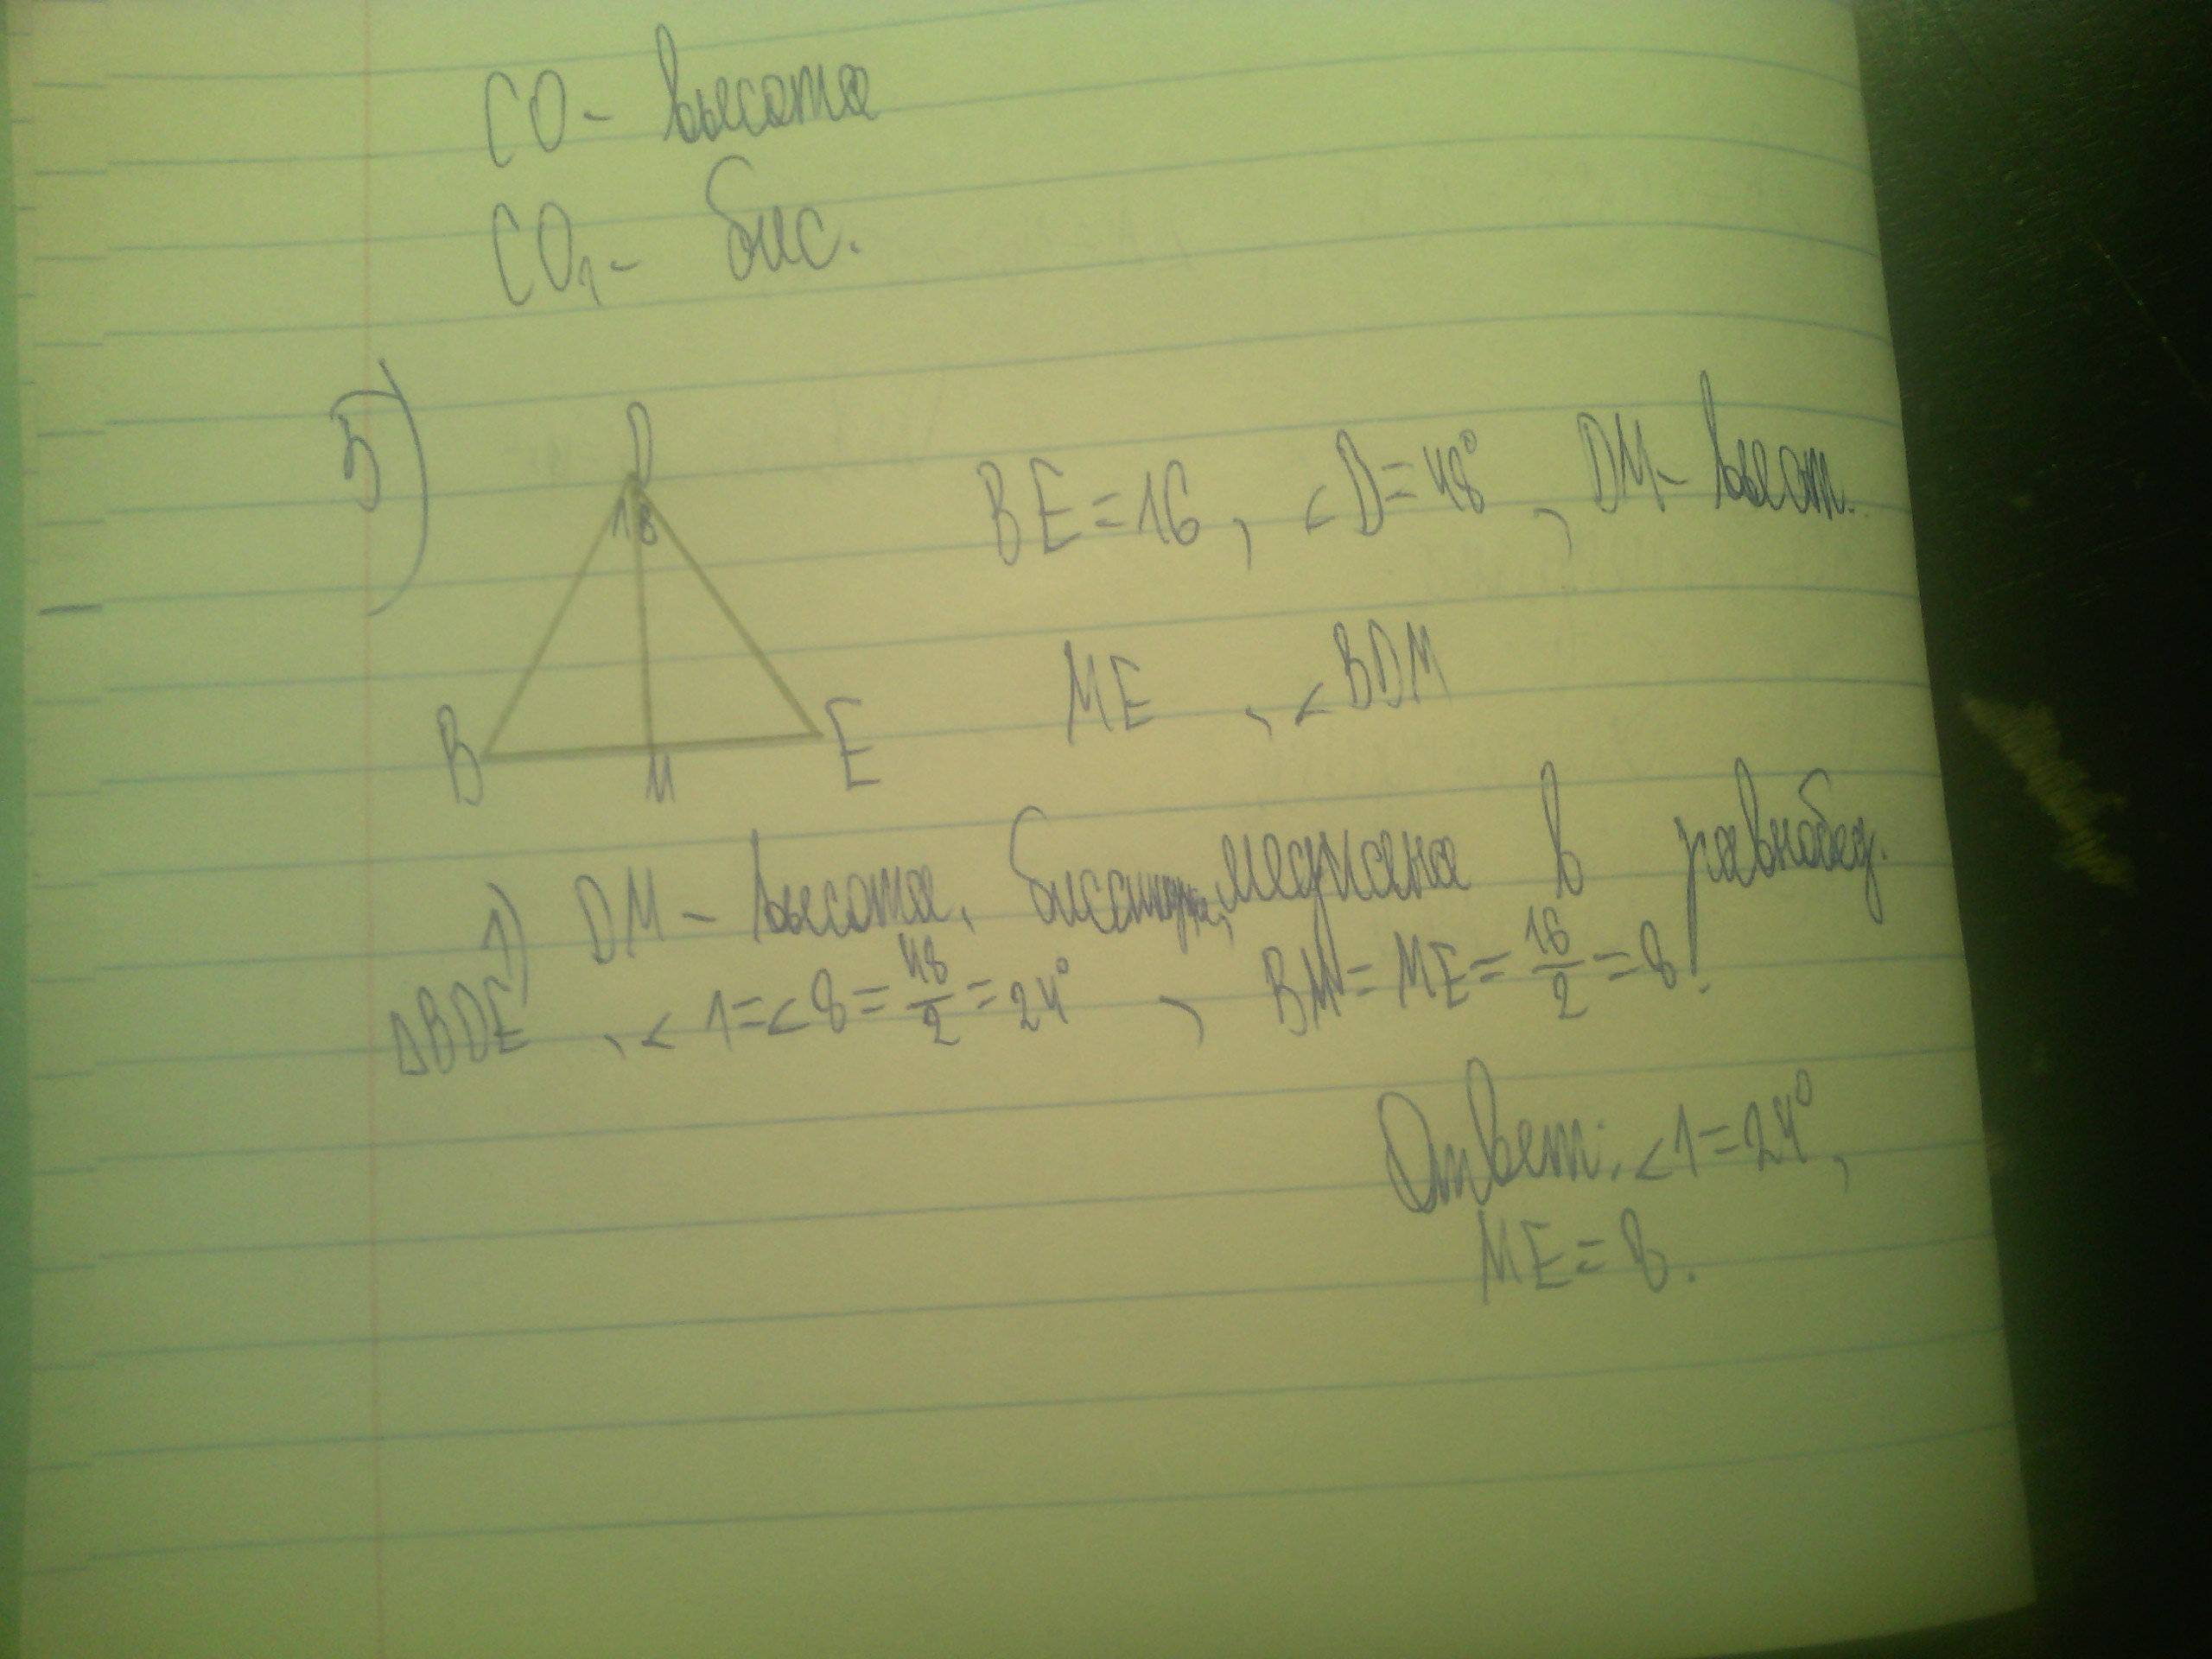 CO - высота
CO₁ - бис.
5)
D
1 8
B M E
BE = 16, ∠D = 48°, DM - высот.
ME, ∠BDM
1) DM - высота, биссектриса, медиана в равнобед.
ΔBDE, ∠1 = ∠8 = 48/2 = 24°, BM = ME = 16/2 = 8.
Ответ: ∠1 = 24°,
ME = 8.